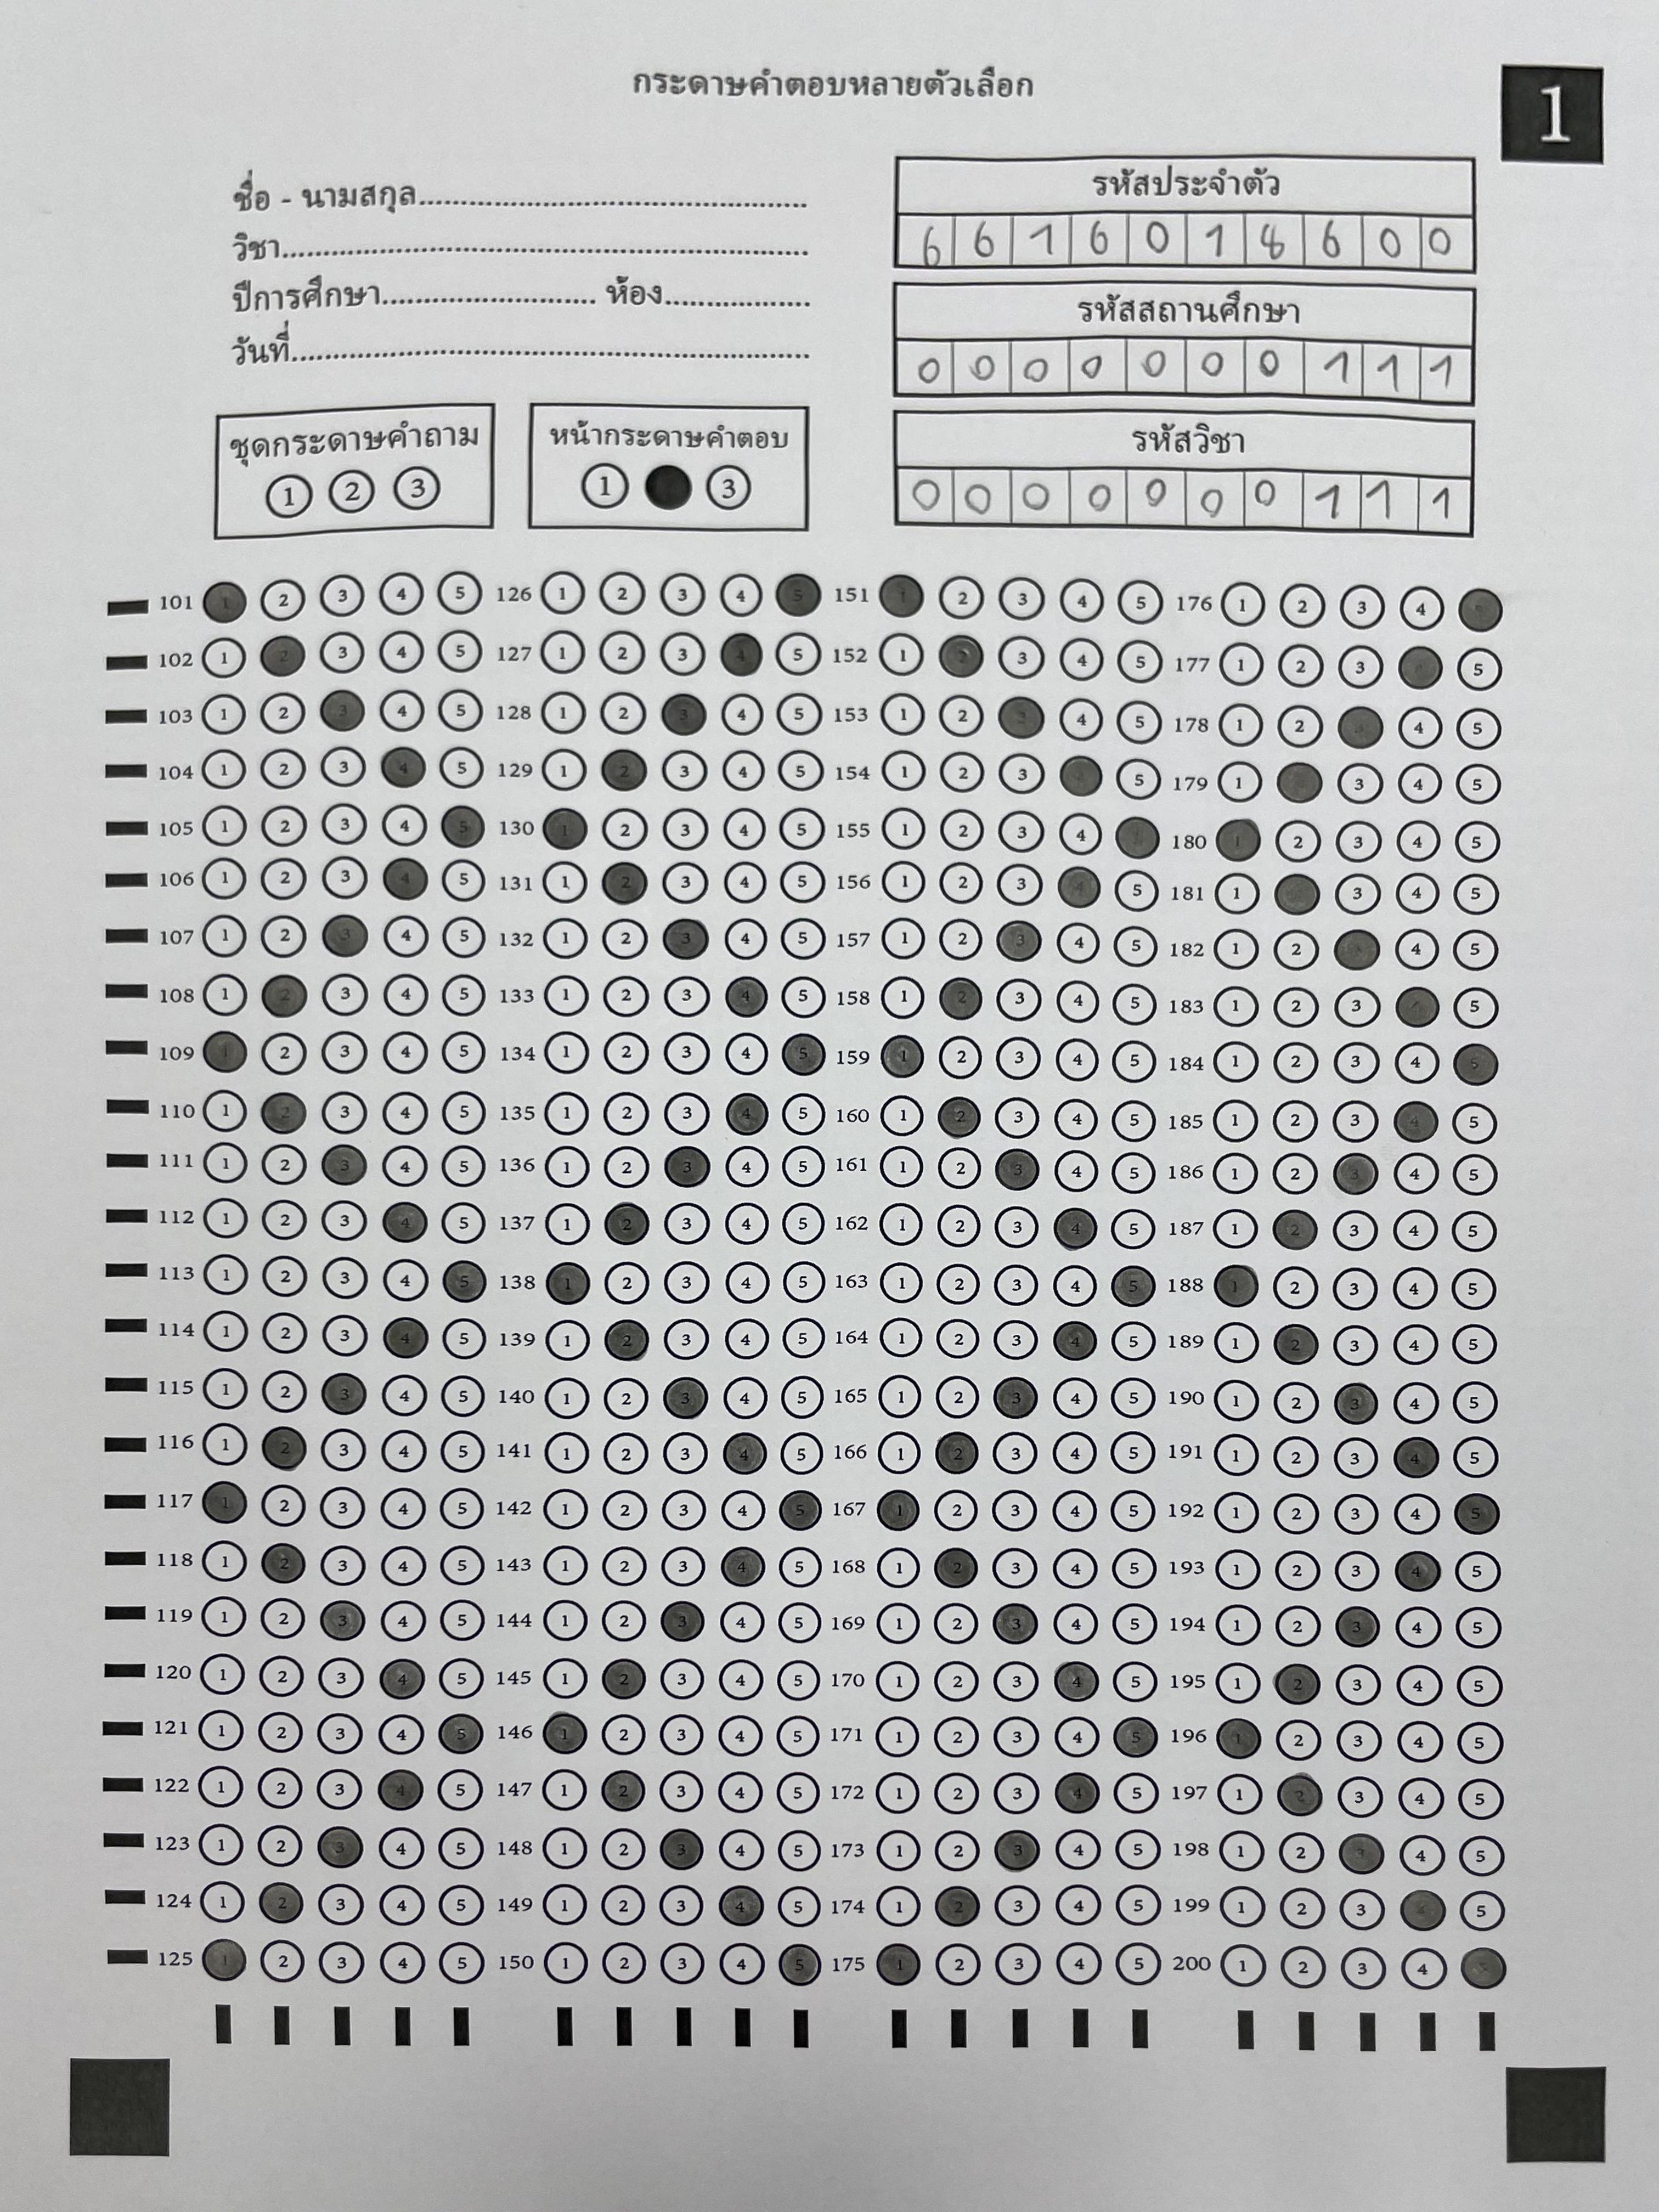 กระดาษคำตอบหลายตัวเลือก
1
ชื่อ - นามสกุล
วิชา
ปีการศึกษา ห้อง
วันที่
รหัสประจำตัว
6 6 1 6 0 1 8 6 0 0
รหัสสถานศึกษา
0 0 0 0 0 0 0 1 1 1
รหัสวิชา
0 0 0 0 0 0 0 1 1 1
ชุดกระดาษคำถาม
1 2 3
หน้ากระดาษคำตอบ
1 3
101 1 2 3 4 5 126 1 2 3 4 5 151 1 2 3 4 5 176 1 2 3 4
102 1 2 3 4 5 127 1 2 3 4 5 152 1 2 3 4 5 177 1 2 3 5
103 1 2 3 4 5 128 1 2 3 4 5 153 1 2 3 4 5 178 1 2 3 4 5
104 1 2 3 4 5 129 1 2 3 4 5 154 1 2 3 5 179 1 3 4 5
105 1 2 3 4 5 130 1 2 3 4 5 155 1 2 3 4 180 1 2 3 4 5
106 1 2 3 4 5 131 1 2 3 4 5 156 1 2 3 4 5 181 1 3 4 5
107 1 2 3 4 5 132 1 2 3 4 5 157 1 2 3 4 5 182 1 2 3 4 5
108 1 2 3 4 5 133 1 2 3 4 5 158 1 2 3 4 5 183 1 2 3 4 5
109 1 2 3 4 5 134 1 2 3 4 5 159 1 2 3 4 5 184 1 2 3 4 5
110 1 2 3 4 5 135 1 2 3 4 5 160 1 2 3 4 5 185 1 2 3 4 5
111 1 2 3 4 5 136 1 2 3 4 5 161 1 2 3 4 5 186 1 2 3 4 5
112 1 2 3 4 5 137 1 2 3 4 5 162 1 2 3 4 5 187 1 2 3 4 5
113 1 2 3 4 5 138 1 2 3 4 5 163 1 2 3 4 5 188 1 2 3 4 5
114 1 2 3 4 5 139 1 2 3 4 5 164 1 2 3 4 5 189 1 2 3 4 5
115 1 2 3 4 5 140 1 2 3 4 5 165 1 2 3 4 5 190 1 2 3 4 5
116 1 2 3 4 5 141 1 2 3 4 5 166 1 2 3 4 5 191 1 2 3 4 5
117 1 2 3 4 5 142 1 2 3 4 5 167 1 2 3 4 5 192 1 2 3 4 5
118 1 2 3 4 5 143 1 2 3 4 5 168 1 2 3 4 5 193 1 2 3 4 5
119 1 2 3 4 5 144 1 2 3 4 5 169 1 2 3 4 5 194 1 2 3 4 5
120 1 2 3 4 5 145 1 2 3 4 5 170 1 2 3 4 5 195 1 2 3 4 5
121 1 2 3 4 5 146 1 2 3 4 5 171 1 2 3 4 5 196 1 2 3 4 5
122 1 2 3 4 5 147 1 2 3 4 5 172 1 2 3 4 5 197 1 2 3 4 5
123 1 2 3 4 5 148 1 2 3 4 5 173 1 2 3 4 5 198 1 2 3 4 5
124 1 2 3 4 5 149 1 2 3 4 5 174 1 2 3 4 5 199 1 2 3 4 5
125 1 2 3 4 5 150 1 2 3 4 5 175 1 2 3 4 5 200 1 2 3 4 5